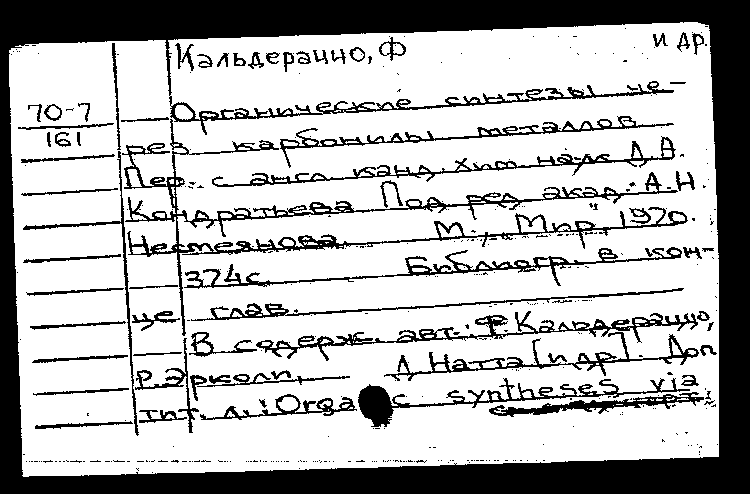 Кальдераццо, Ф и др.
70-7 Органические синтезы че-
161 рез карбонилы металлов
Пер. с англ. канд. хим. наук Л.А.
Кондратьева Под ред акад. А.Н.
Несмеянова. М., „Мир", 1970.
374с. Библиогр. в кон-
це глав.
В содерж. авт.: Ф. Кальдераццо,
Р. Эрколи, Д. Натта [и др]. Доп
тит. л.: Orga c syntheses via